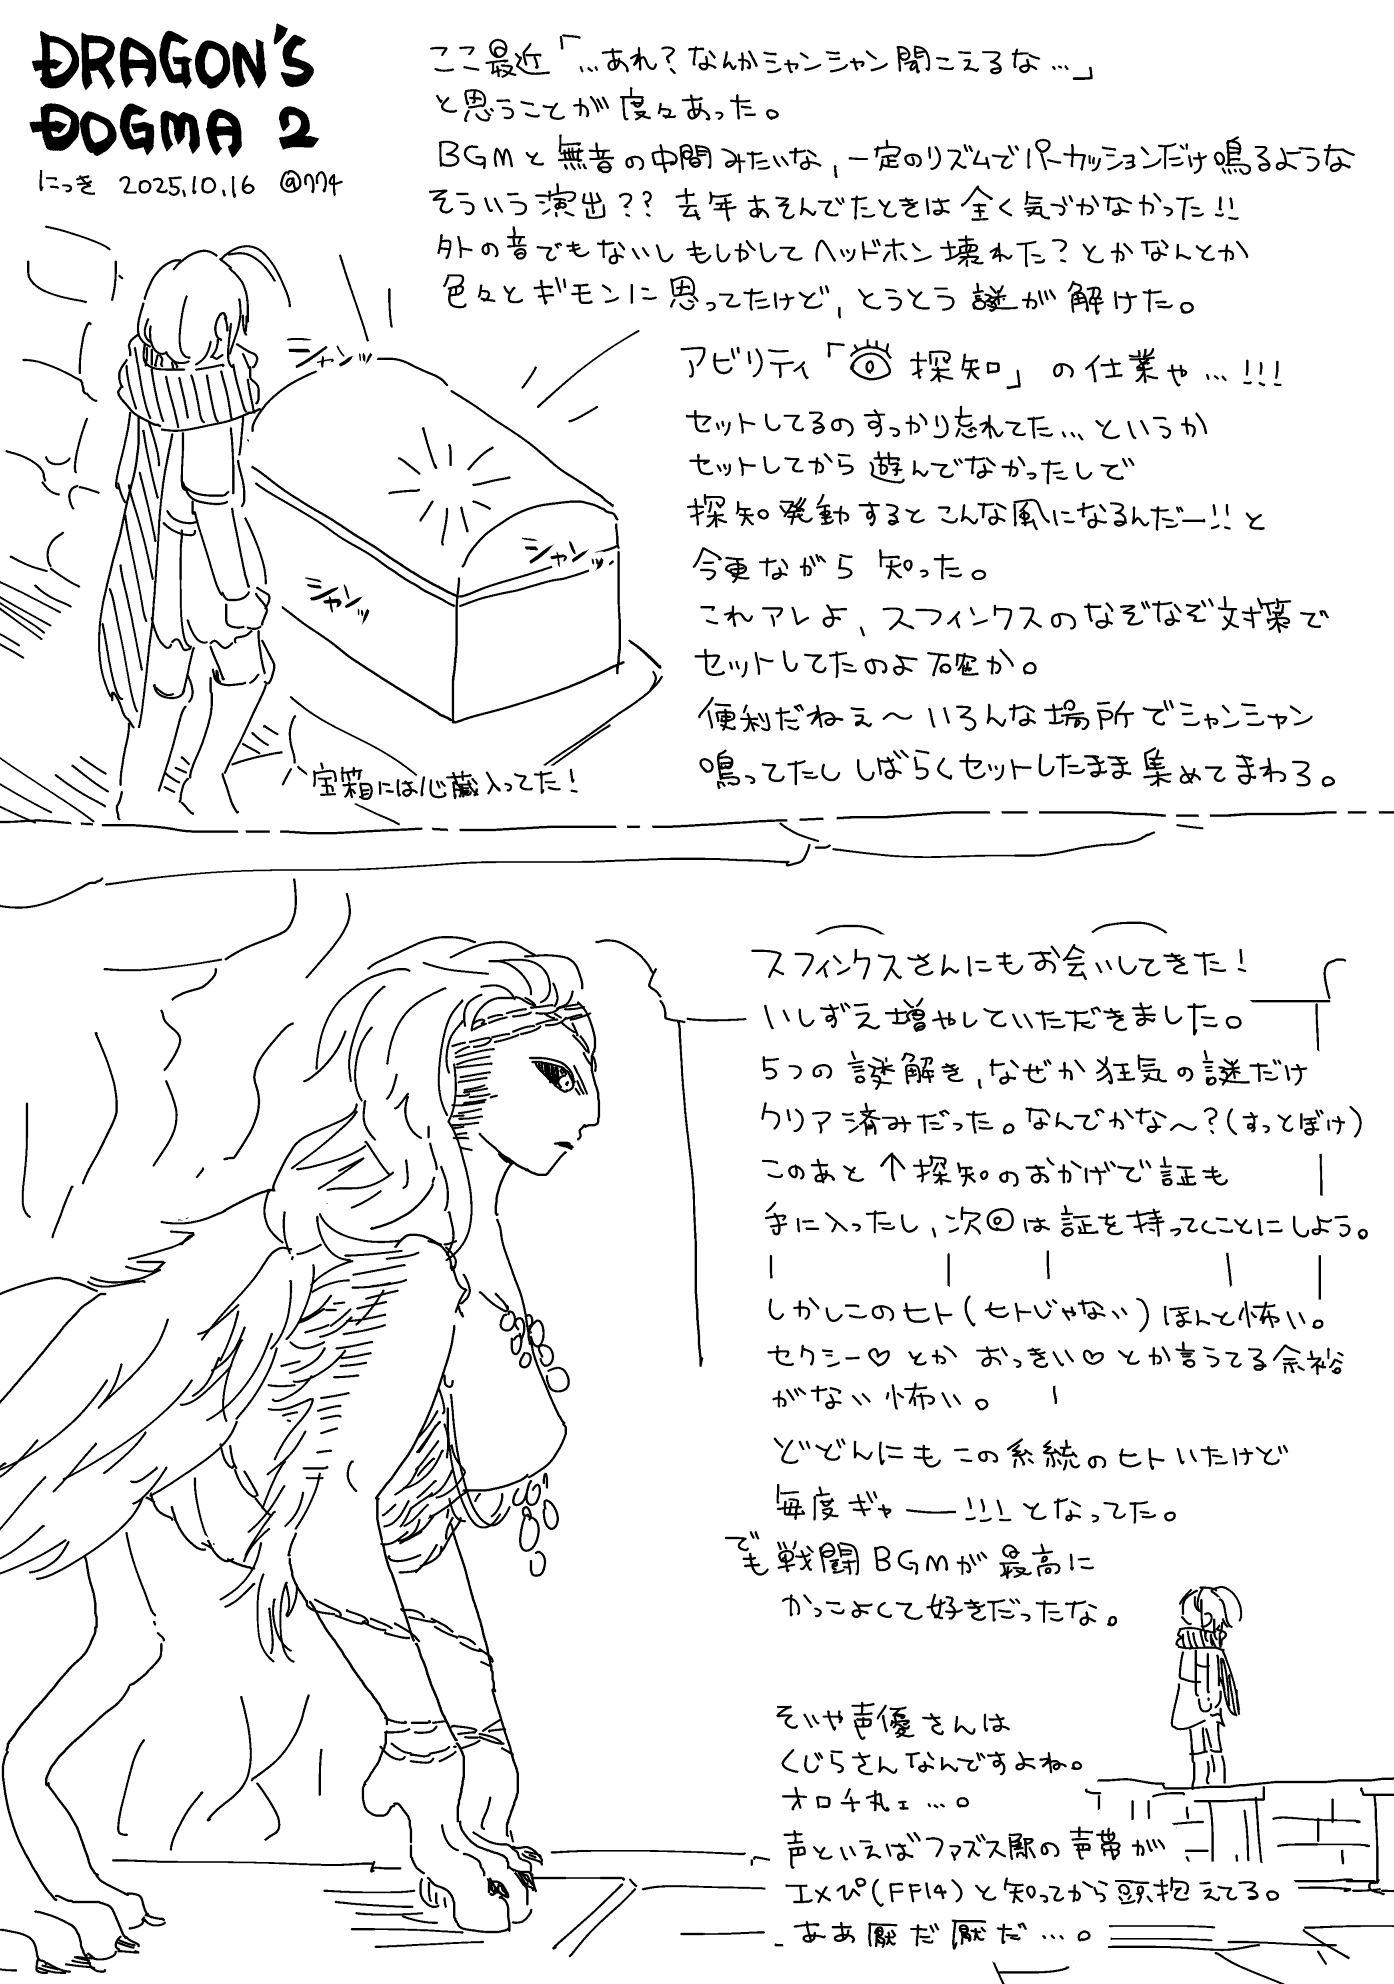 DRAGON'S
DOGMA 2
にっき 2025.10.16
ここ最近「…あれ？なんかシャンシャン聞こえるな…」
と思うことが度々あった。
BGMと無音の中間みたいな、一定のリズムでパーカッションだけ鳴るような
そういう演出？？去年あそんでたときは全く気づかなかった!!
外の音でもないしもしかしてヘッドホン壊れた？とかなんとか
色々とギモンに思ってたけど、とうとう謎が解けた。
アビリティ「探知」の仕業や…!!!
セットしてるのすっかり忘れてた…というか
セットしてから遊んでなかったしで
探知発動するとこんな風になるんだー!!と
今更ながら知った。
これアレよ、スフィンクスのなぞなぞ対策で
セットしてたのよ確か。
便利だねぇ〜いろんな場所でシャンシャン
鳴ってたししばらくセットしたまま集めてまわろ。
シャンッ
シャンッ
シャンッ
宝箱には心臓入ってた！
スフィンクスさんにもお会いしてきた！
いしずえ増やしていただきました。
5つの謎解き、なぜか狂気の謎だけ
クリア済みだった。なんでかな〜？(すっとぼけ)
このあと↑探知のおかげで証も
手に入ったし、次回は証を持ってくことにしよう。
しかしこのヒト(ヒトじゃない)ほんと怖い。
セクシー♡とか おっきい♡とか言うてる余裕
がない怖い。
どどんにもこの系統のヒトいたけど
毎度ギャー!!!となってた。
でも戦闘BGMが最高に
かっこよくて好きだったな。
そいや声優さんは
くじらさんなんですよね。
オロチ丸ェ…。
声といえばファズス殿の声帯が
エメぴ(FF14)と知ってから頭抱えてる。
ああ厭だ厭だ…。